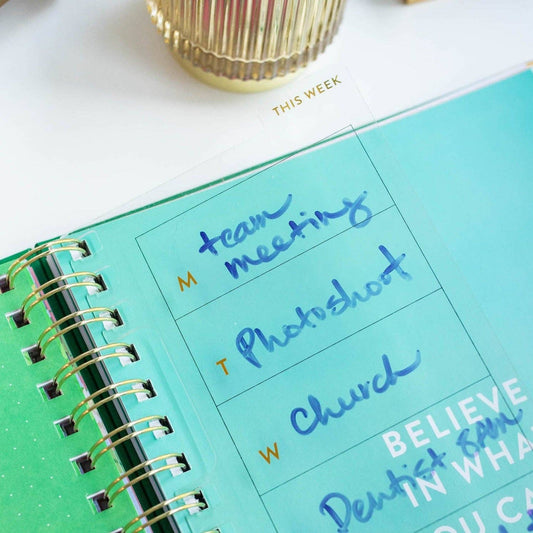 THIS WEEK
M
team
meeting
T
Photoshoot
W
Church
Dentist 8am
BELIEVE
IN WHA
OU CA